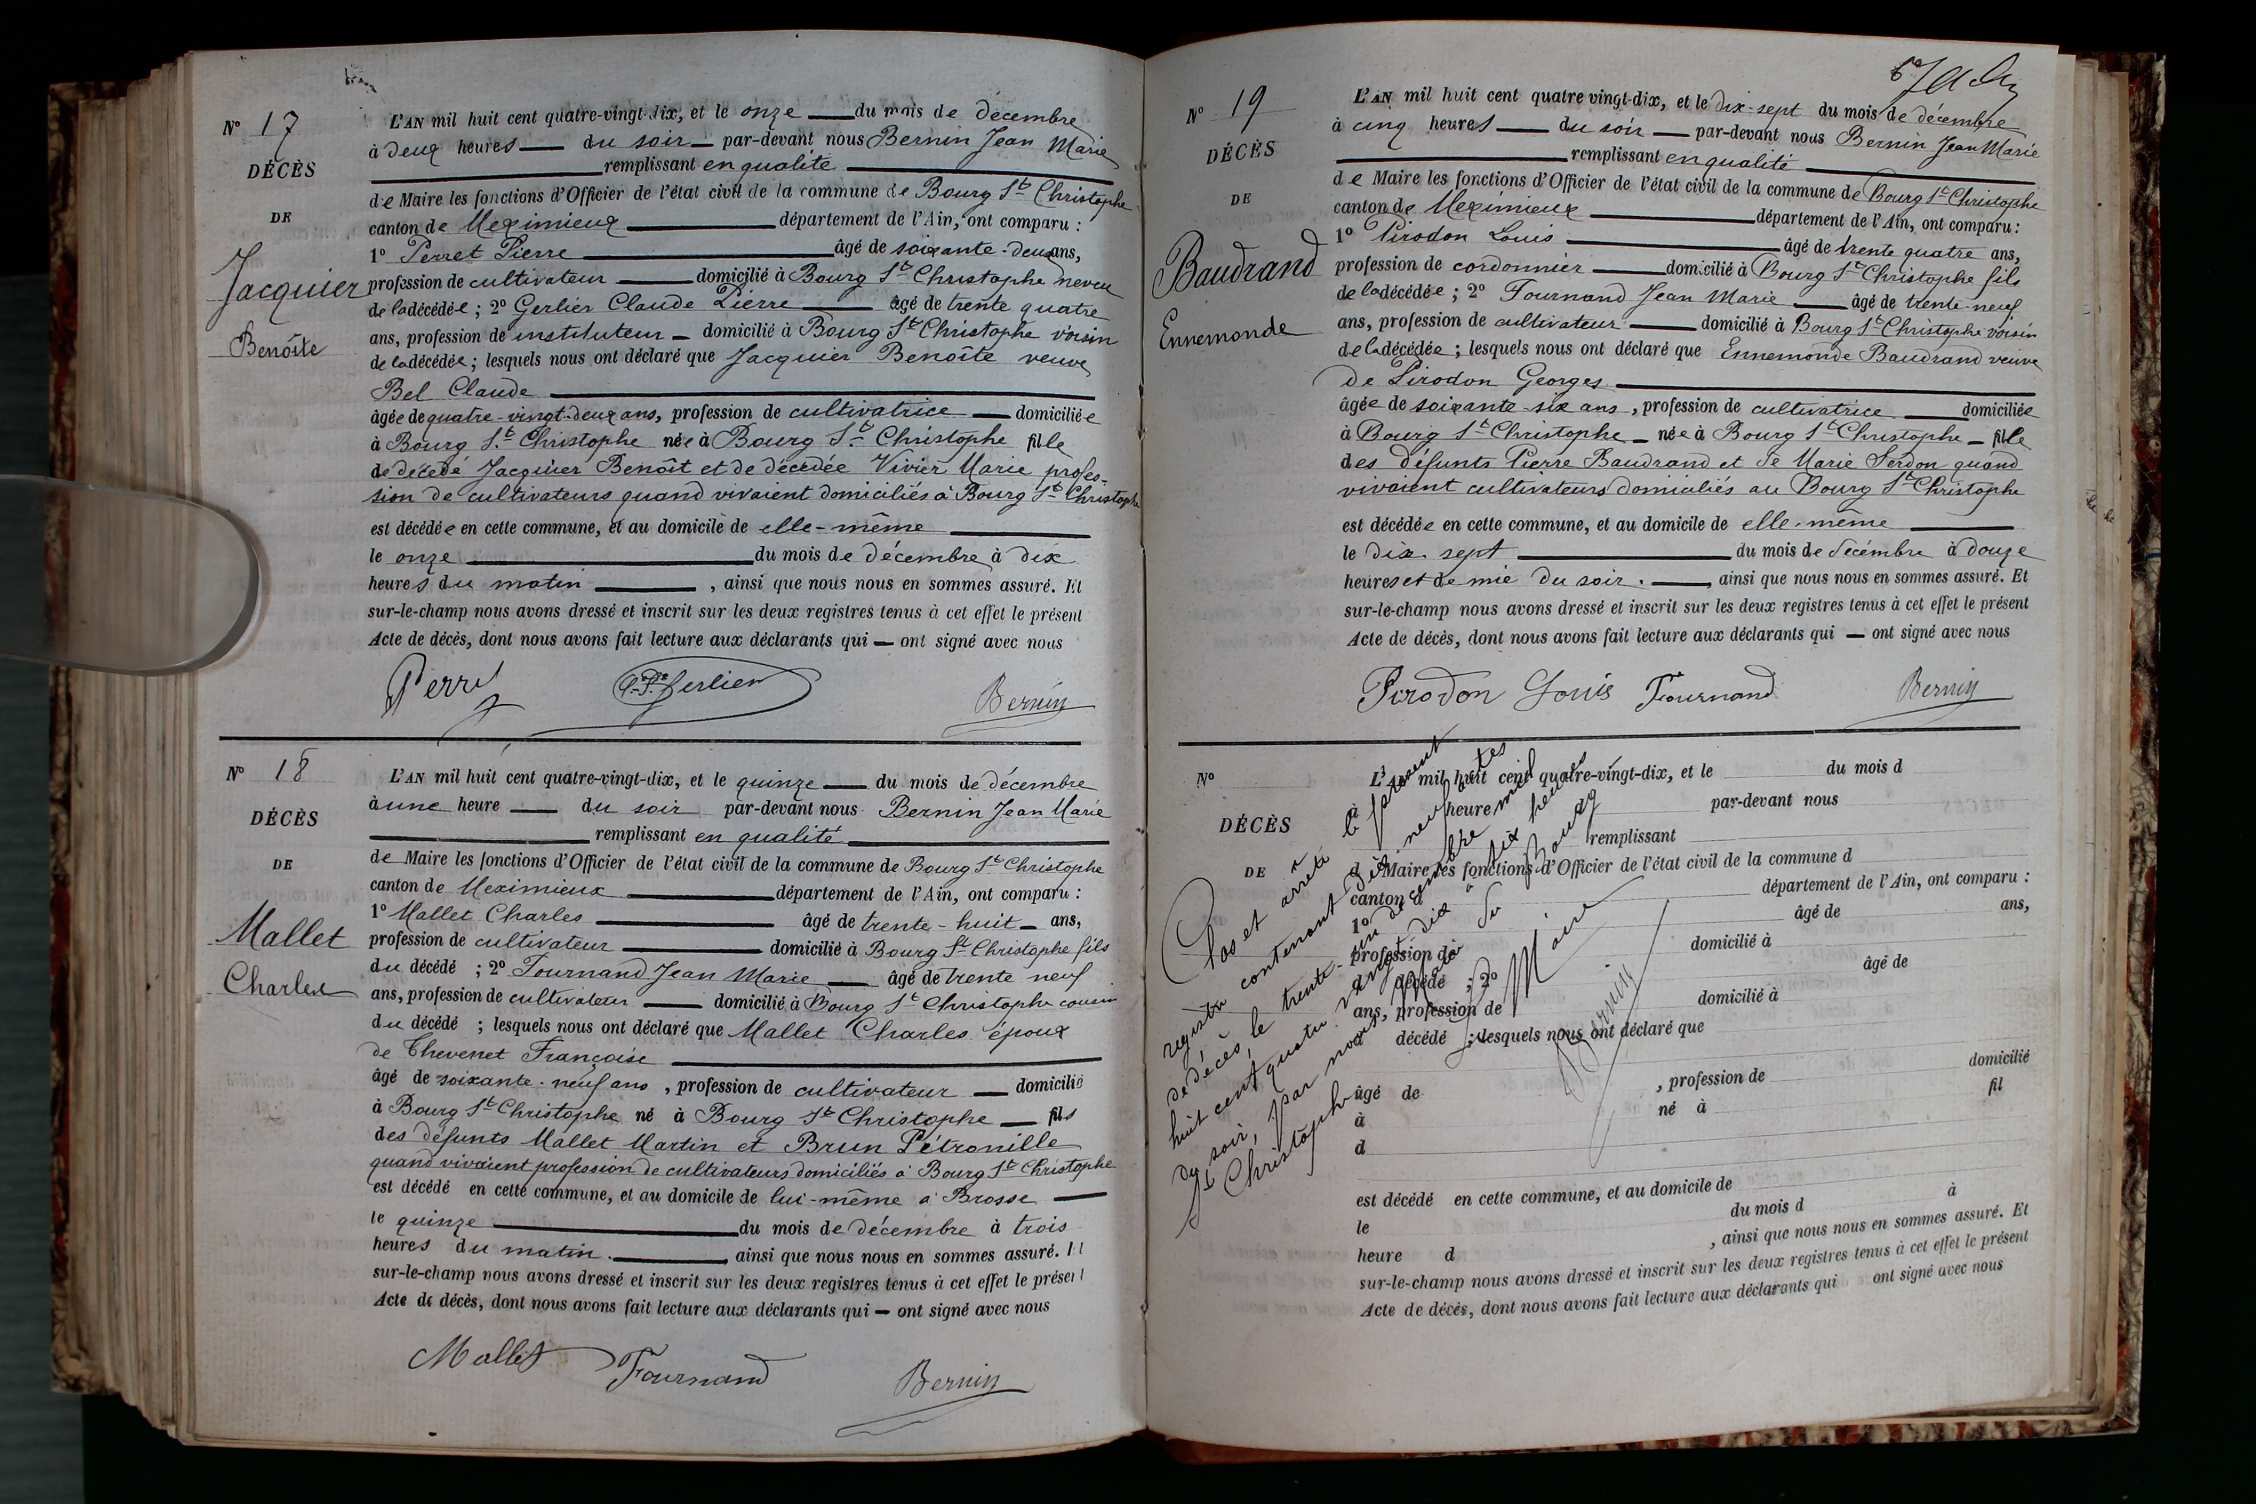 N° 17
DÉCÈS
DE
Jacquier
Benoîte
L'AN mil huit cent quatre-vingt-dix, et le onze du mois de décembre
à deux heures du soir par-devant nous Bernin Jean Marie
remplissant en qualité
de Maire les fonctions d'Officier de l'état civil de la commune de Bourg St Christophe
canton de Meximieux département de l'Ain, ont comparu :
1° Perret Pierre âgé de soixante-deux ans,
profession de cultivateur domicilié à Bourg St Christophe neveu
de la décédée ; 2° Gerlier Claude Pierre âgé de trente quatre
ans, profession de instituteur domicilié à Bourg St Christophe voisin
de la décédée ; lesquels nous ont déclaré que Jacquier Benoîte veuve
Bel Claude
âgée de quatre-vingt-deux ans, profession de cultivatrice domiciliée
à Bourg St Christophe née à Bourg St Christophe fille
de décédé Jacquier Benoît et de décédée Vivier Marie profes-
sion de cultivateurs quand vivaient domiciliés à Bourg St Christophe
est décédée en cette commune, et au domicile de elle-même
le onze du mois de décembre à dix
heures du matin , ainsi que nous nous en sommes assuré. Et
sur-le-champ nous avons dressé et inscrit sur les deux registres tenus à cet effet le présent
Acte de décès, dont nous avons fait lecture aux déclarants qui ont signé avec nous
Perret Gerlier Bernin
N° 18
DÉCÈS
DE
Mallet
Charles
L'AN mil huit cent quatre-vingt-dix, et le quinze du mois de décembre
à une heure du soir par-devant nous Bernin Jean Marie
remplissant en qualité
de Maire les fonctions d'Officier de l'état civil de la commune de Bourg St Christophe
canton de Meximieux département de l'Ain, ont comparu :
1° Mallet Charles âgé de trente-huit ans,
profession de cultivateur domicilié à Bourg St Christophe fils
du décédé ; 2° Fournand Jean Marie âgé de trente neuf
ans, profession de cultivateur domicilié à Bourg St Christophe cousin
du décédé ; lesquels nous ont déclaré que Mallet Charles époux
de Thevenet Françoise
âgé de soixante-neuf ans, profession de cultivateur domicilié
à Bourg St Christophe né à Bourg St Christophe fils
des défunts Mallet Martin et Brun Pétronille
quand vivaient profession de cultivateurs domiciliés à Bourg St Christophe
est décédé en cette commune, et au domicile de lui-même à Brosse
le quinze du mois de décembre à trois
heures du matin. ainsi que nous nous en sommes assuré. Et
sur-le-champ nous avons dressé et inscrit sur les deux registres tenus à cet effet le présent
Acte de décès, dont nous avons fait lecture aux déclarants qui ont signé avec nous
Mallet Fournand Bernin
N° 19
DÉCÈS
DE
Baudrand
Ennemonde
L'AN mil huit cent quatre vingt-dix, et le dix-sept du mois de décembre
à cinq heures du soir par-devant nous Bernin Jean Marie
remplissant en qualité
de Maire les fonctions d'Officier de l'état civil de la commune de Bourg St Christophe
canton de Meximieux département de l'Ain, ont comparu :
1° Pirodon Louis âgé de trente quatre ans,
profession de cordonnier domicilié à Bourg St Christophe fils
de la décédée ; 2° Fournand Jean Marie âgé de trente-neuf
ans, profession de cultivateur domicilié à Bourg St Christophe voisin
de la décédée ; lesquels nous ont déclaré que Ennemonde Baudrand veuve
de Pirodon Georges
âgée de soixante-six ans, profession de cultivatrice domiciliée
à Bourg St Christophe née à Bourg St Christophe fille
des défunts Pierre Baudrand et de Marie Serdon quand
vivaient cultivateurs domiciliés au Bourg St Christophe
est décédée en cette commune, et au domicile de elle-même
le dix-sept du mois de décembre à douze
heures et demie du soir. , ainsi que nous nous en sommes assuré. Et
sur-le-champ nous avons dressé et inscrit sur les deux registres tenus à cet effet le présent
Acte de décès, dont nous avons fait lecture aux déclarants qui ont signé avec nous
Pirodon Louis Fournand Bernin
N°
DÉCÈS
DE
L'AN mil huit cent quatre-vingt-dix, et le du mois d
à heure par-devant nous
remplissant
d Maire les fonctions d'Officier de l'état civil de la commune d
canton d département de l'Ain, ont comparu :
1° âgé de ans,
profession de domicilié à
d décédé ; 2° âgé de
ans, profession de domicilié à
d décédé ; lesquels nous ont déclaré que
âgé de , profession de domicilié
à né à fil
d
est décédé en cette commune, et au domicile de
le du mois d à
heure d , ainsi que nous nous en sommes assuré. Et
sur-le-champ nous avons dressé et inscrit sur les deux registres tenus à cet effet le présent
Acte de décès, dont nous avons fait lecture aux déclarants qui ont signé avec nous
Clos et arrêté le présent
registre contenant dix neuf actes
de décès, le trente-un décembre mil
huit cent quatre vingt dix à six heures
du soir, par nous Maire du Bourg
St Christophe
Le Maire
Bernin